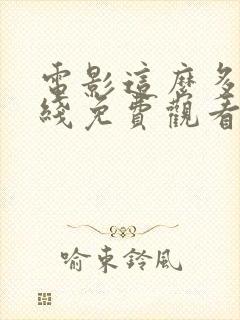 電影這麼多
綫免費觀看
喻東鈴風